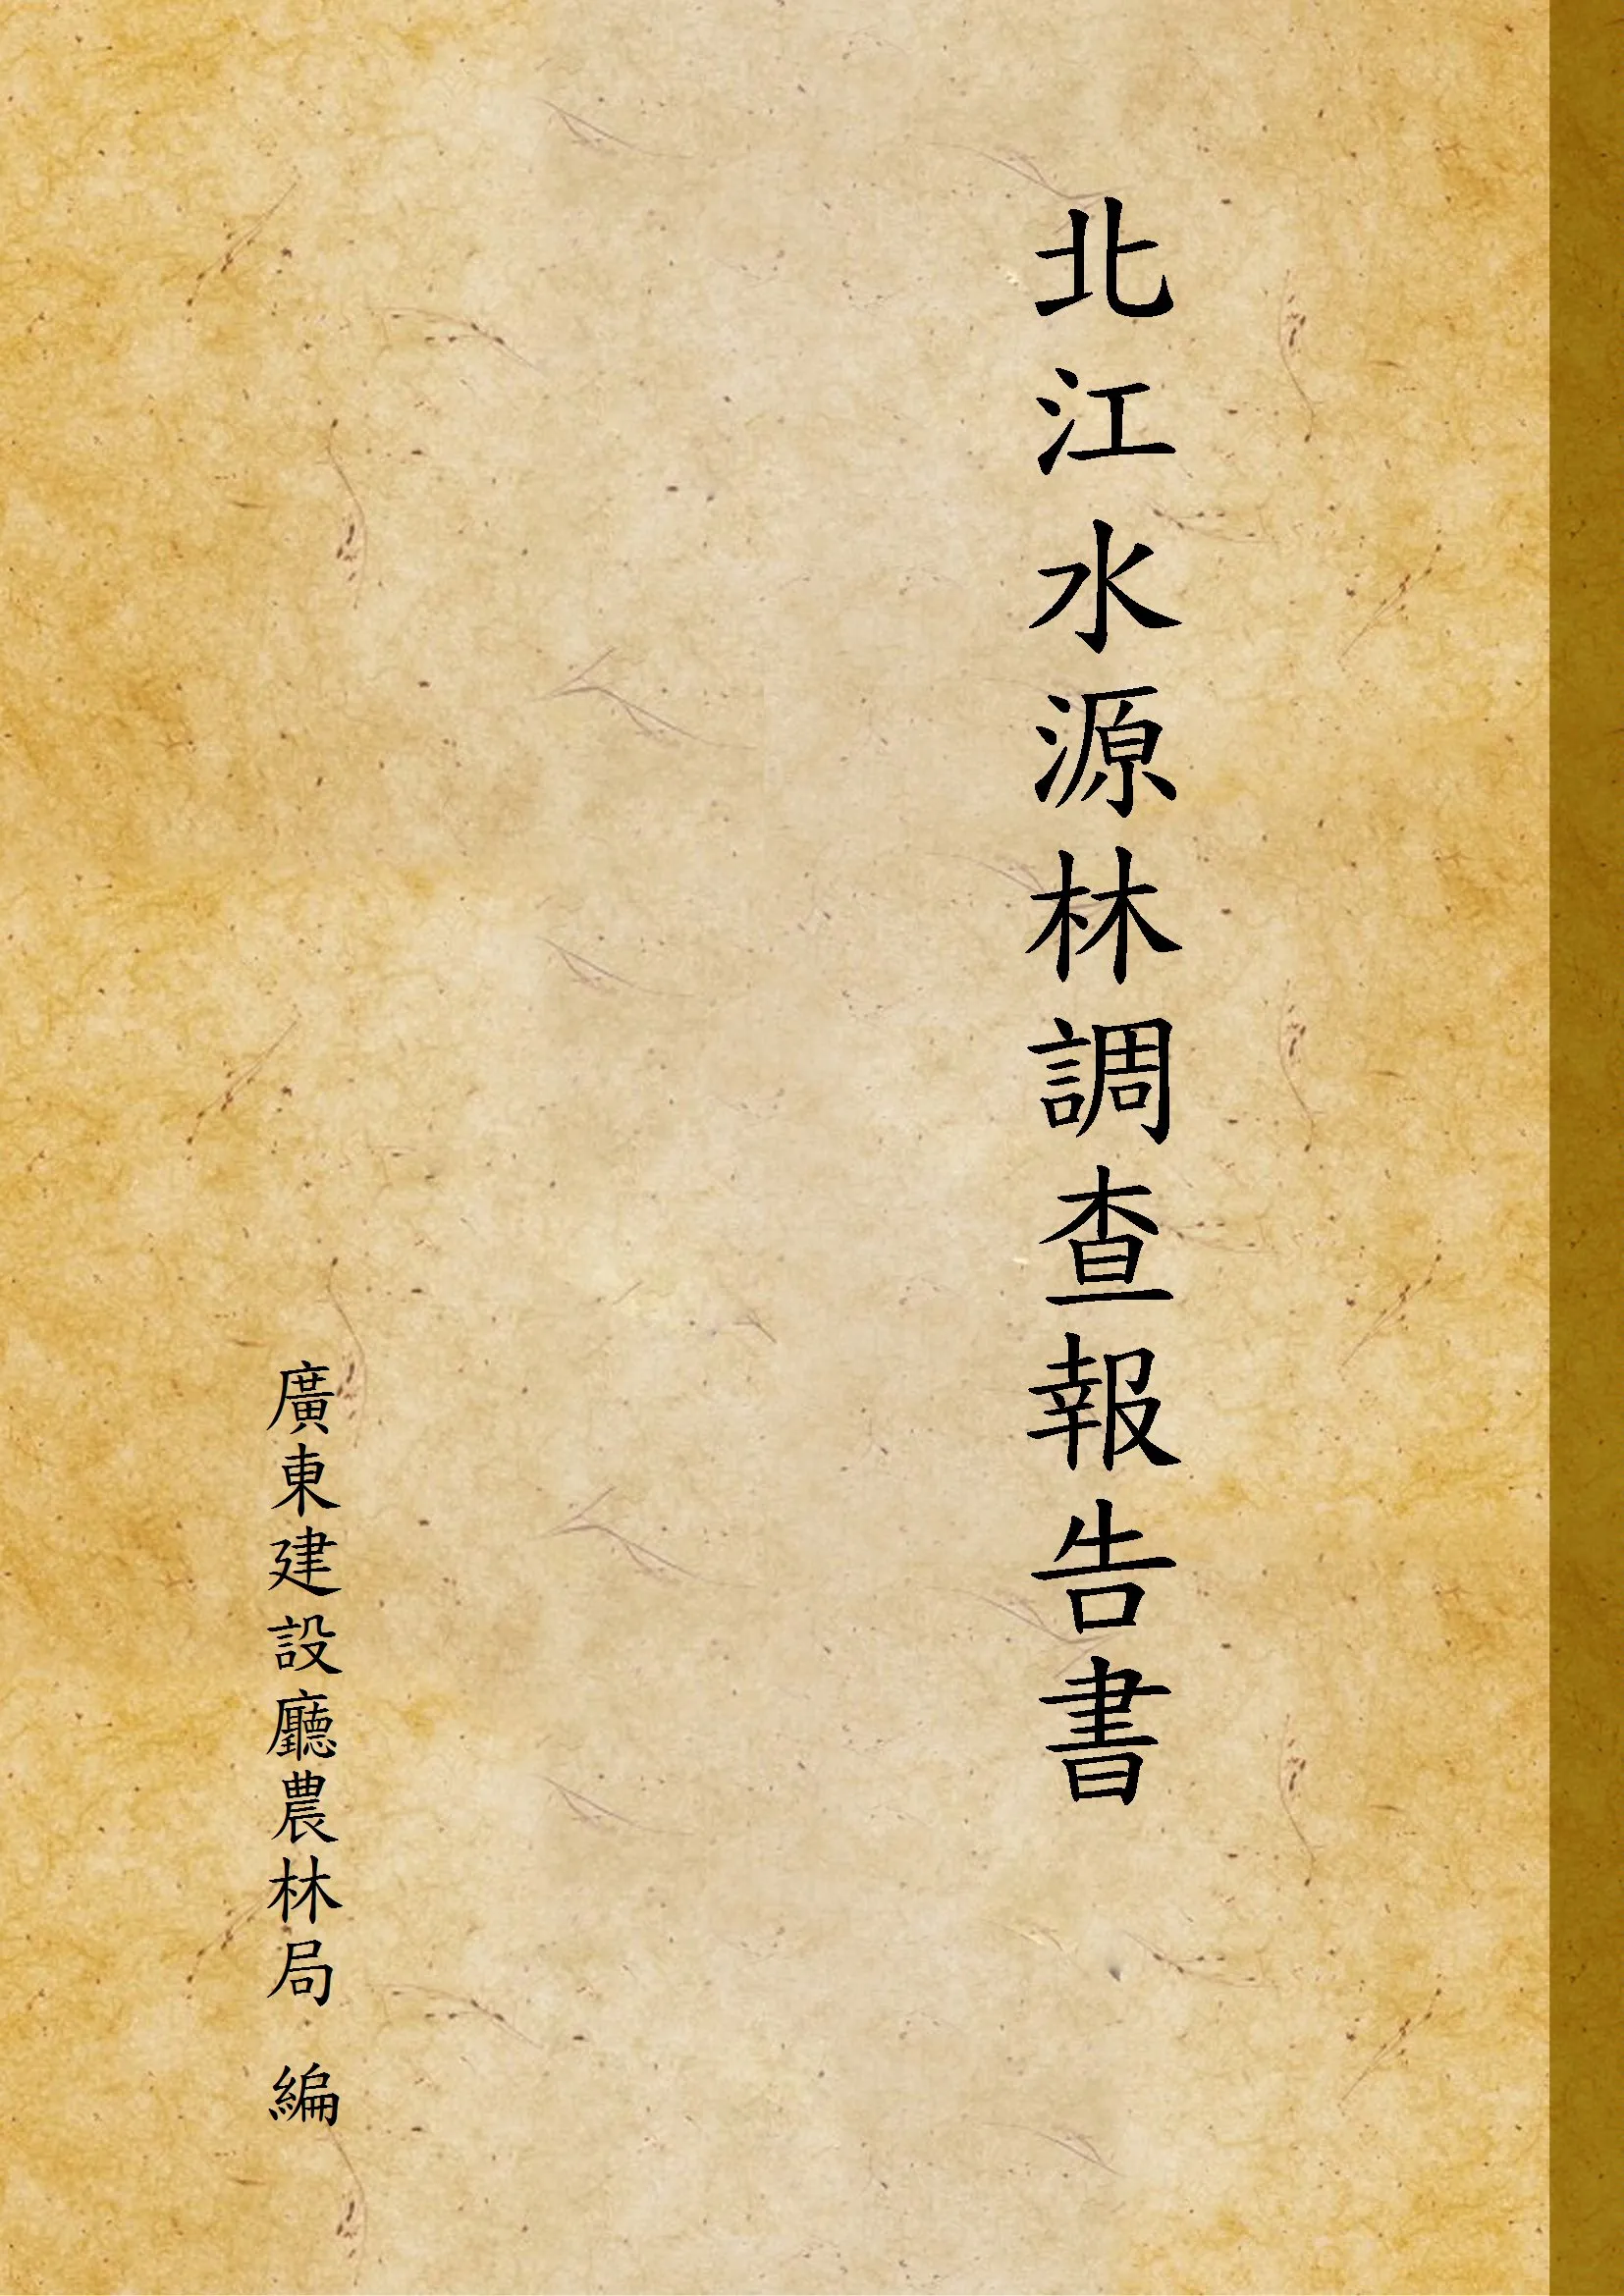 北江水源林調查報告書
廣東建設廳農林局 編